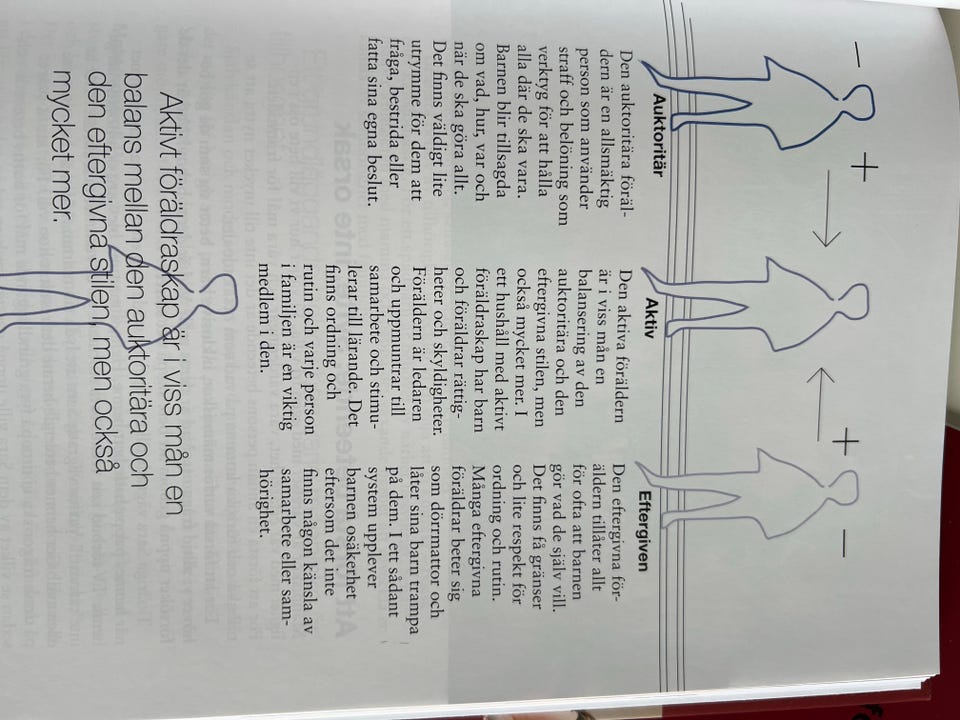 − + + −
Auktoritär
Den auktoritära föräl-
dern är en allsmäktig
person som använder
straff och belöning som
verktyg för att hålla
alla där de ska vara.
Barnen blir tillsagda
om vad, hur, var och
när de ska göra allt.
Det finns väldigt lite
utrymme för dem att
fråga, bestrida eller
fatta sina egna beslut.
Aktiv
Den aktiva föräldern
är i viss mån en
balansering av den
auktoritära och den
eftergivna stilen, men
också mycket mer. I
ett hushåll med aktivt
föräldraskap har barn
och föräldrar rättig-
heter och skyldigheter.
Föräldern är ledaren
och uppmuntrar till
samarbete och stimu-
lerar till lärande. Det
finns ordning och
rutin och varje person
i familjen är en viktig
medlem i den.
Eftergiven
Den eftergivna för-
äldern tillåter allt
för ofta att barnen
gör vad de själv vill.
Det finns få gränser
och lite respekt för
ordning och rutin.
Många eftergivna
föräldrar beter sig
som dörrmattor och
låter sina barn trampa
på dem. I ett sådant
system upplever
barnen osäkerhet
eftersom det inte
finns någon känsla av
samarbete eller sam-
hörighet.
Aktivt föräldraskap är i viss mån en
balans mellan den auktoritära och
den eftergivna stilen, men också
mycket mer.